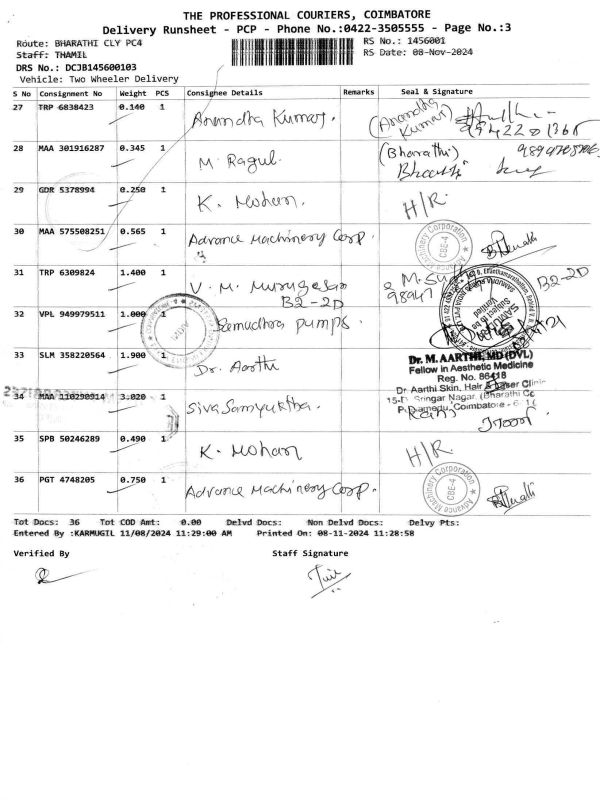 THE PROFESSIONAL COURIERS, COIMBATORE
Delivery Runsheet - PCP - Phone No.:0422-3505555 - Page No.:3
Route: BHARATHI CLY PC4 RS No.: 1456001
Staff: THAMIL RS Date: 08-Nov-2024
DRS No.: DCJB145600103
Vehicle: Two Wheeler Delivery
S No Consignment No Weight PCS Consignee Details Remarks Seal & Signature
27 TRP 6838423 0.140 1 Anandha Kumar. (Anandha Kumar)
28 MAA 301916287 0.345 1 M. Ragul. (Bharathi)
29 GDR 5378994 0.250 1 K. Mohan. H/R.
30 MAA 575508251 0.565 1 Advance Machinery Corp. Advance Machinery Corporation CBE-4
31 TRP 6309824 1.400 1 V. M. Murugesan B2-2D B2-2D
32 VPL 949979511 1.000 1 Samudhra pumps.
33 SLM 358220564 1.900 1 Dr. Aarthi
Dr. M. AARTHI, MD (DVL)
Fellow in Aesthetic Medicine
Reg. No. 86418
Dr Aarthi Skin, Hair & Laser Clinic
Sringar Nagar, (Bharathi
Coimbatore
34 MAA 110290914 3.020 1 Siva Samyuktha. Rani
35 SPB 50246289 0.490 1 K. Mohan H/R
36 PGT 4748205 0.750 1 Advance Machinery Corp. Advance Machinery Corporation CBE-4
Tot Docs: 36 Tot COD Amt: 0.00 Delvd Docs: Non Delvd Docs: Delvy Pts:
Entered By :KARMUGIL 11/08/2024 11:29:00 AM Printed On: 08-11-2024 11:28:58
Verified By Staff Signature